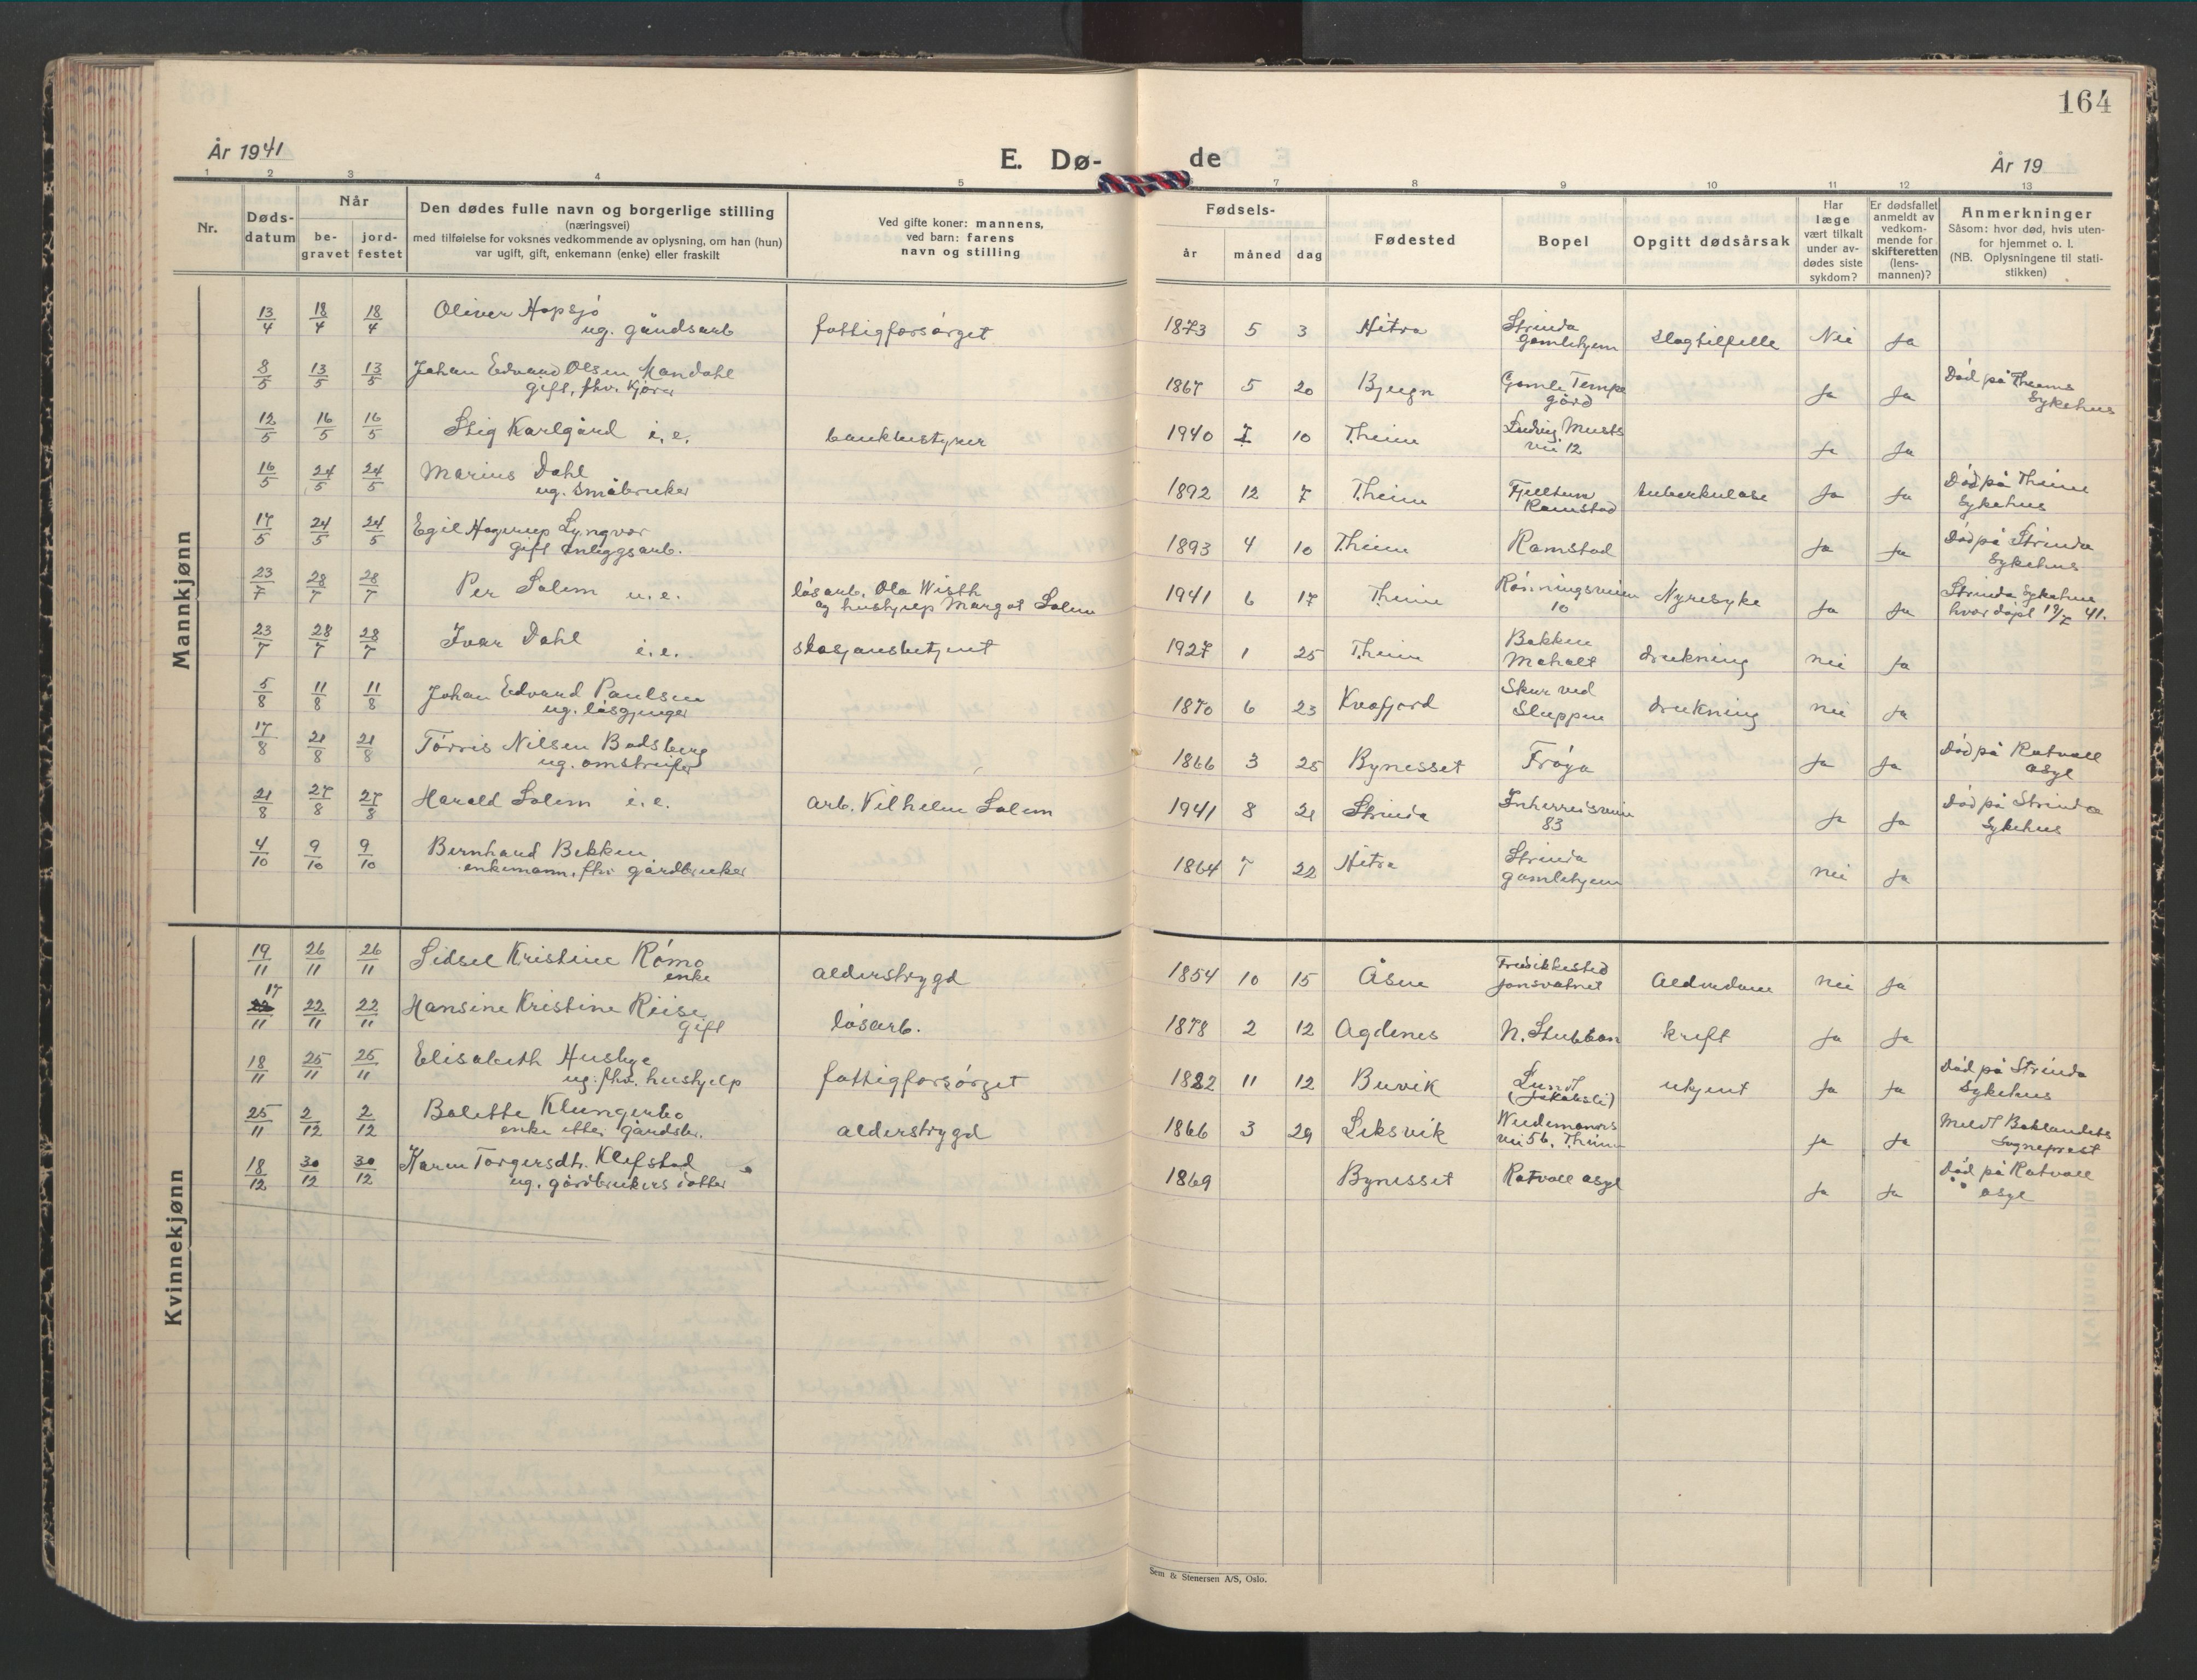 164
År 1941
E. Dø-
de
År 19
1 2 3 4 5 7 8 9 10 11 12 13
Nr.
Døds-
datum
Når
be-
gravet
jord-
festet
Den dødes fulle navn og borgerlige stilling
(næringsvei)
med tilføielse for voksnes vedkommende av oplysning, om han (hun)
var ugift, gift, enkemann (enke) eller fraskilt
Ved gifte koner: mannens,
ved barn: farens
navn og stilling
Fødsels-
år måned dag
Fødested
Bopel
Opgitt dødsårsak
Har
læge
vært tilkalt
under av-
dødes siste
sykdom?
Er dødsfallet
anmeldt av
vedkom-
mende for
skifteretten
(lens-
mannen)?
Anmerkninger
Såsom: hvor død, hvis uten-
for hjemmet o. l.
(NB. Oplysningene til stati-
stikken)
Mannkjønn
13/4 18/4 18/4 Oliver Hopsjø
ug. gårdsarb fattigforsørget 1873 5 3 Hitra Strinda
gamlehjem slagtilfelle Nei Ja
8/5 13/5 13/5 Johan Edvard Olsen Mandahl
gift, fhv. kjører 1867 5 20 Bjugn Gamle Tempe
gård Ja Ja Død på Theims
Sykehus
12/5 16/5 16/5 Stig Karlgård i.e. bankbestyrer 1940 7 10 T.heim Ludvig Musts
vei 12 Ja Ja
16/5 24/5 24/5 Marius Dahl
ug. småbruker 1892 12 7 T.heim Fjelltun
Ramstad tuberkulose Ja Ja Død på Theim
Sykehus
17/5 24/5 24/5 Egil Hagerup Lyngvær
gift anleggsarb. 1893 4 10 T.heim Ramstad Ja Ja Død på Strinda
Sykehus
23/7 28/7 28/7 Per Solem u.e. løsarb. Ola Wisth
og hushjelp Margot Solem 1941 6 17 T.heim Rønningsveien
10 Nyresyke Ja Ja Strinda Sykehus
hvor døpt 19/7 41.
23/7 28/7 28/7 Ivar Dahl i.e. stasjonsbetjent 1927 1 25 T.heim Bakken
Moholt drukning nei Ja
5/8 11/8 11/8 Johan Edvard Paulsen
ug. løsgjenger 1870 6 23 Kvæfjord Skur ved
Sluppen drukning nei Ja
17/8 21/8 21/8 Tørris Nilsen Bodsberg
ug. omstreifer 1866 3 25 Bynesset Frøya Ja Ja Død på Rotvoll
asyl
21/8 27/8 27/8 Harald Solem i.e. arb. Vilhelm Solem 1941 8 21 Strinda Inherredsveien
83 Ja Ja Død på Strinda
Sykehus
4/10 9/10 9/10 Bernhard Bekken
enkemann, fhv gårdbruker 1864 7 22 Hitra Strinda
gamlehjem nei Ja
Kvinnekjønn
19/11 26/11 26/11 Sidsel Kristine Rømo
enke alderstrygd 1854 10 15 Åsen Fredrikkested
Jonsvatnet Alderdom nei Ja
17
22/11 22/11 22/11 Hansine Kristine Riise
gift løsarb. 1878 2 12 Agdenes N. Stubban kreft Ja Ja
18/11 25/11 25/11 Elisabeth Husbye
ug. fhv. hushjelp fattigforsørget 1882 11 12 Buvik Lund
(Jakobsli) ukjent Ja Ja Død på Strinda
Sykehus
25/11 2/12 2/12 Bolette Klungerbo
enke etter gårdbr. alderstrygd 1866 3 29 Leksvik Weidemanns
vei 56. Theim Ja Ja Meldt Baklandets
Sogneprest
18/12 30/12 30/12 Karen Torgersdtr. Klefstad
ug. gårdbrukers datter 1869 Bynesset Rotvoll asyl Ja Ja Død på Rotvoll
asyl
Sem & Stenersen A/S, Oslo.